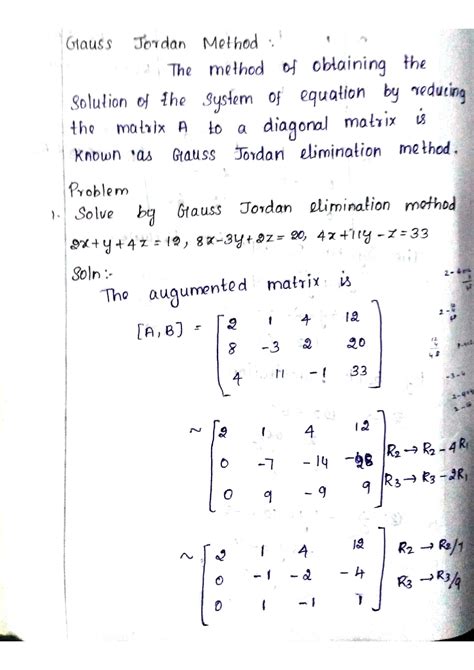 Gauss Jordan Method :
The method of obtaining the
Solution of the System of equation by reducing
the matrix A to a diagonal matrix is
known as Gauss Jordan elimination method.
Problem
1. Solve by Gauss Jordan elimination method
2x+y+4z=12, 8x-3y+2z=20, 4x+11y-z=33
Soln :-
The augumented matrix is
[A,B] = [ 2 1 4 12
8 -3 2 20
4 11 -1 33 ]
~ [ 2 1 4 12
0 -7 -14 -28 R2 → R2 - 4R1
0 9 -9 9 ] R3 → R3 - 2R1
~ [ 2 1 4 12 R2 → R2/7
0 -1 -2 -4 R3 → R3/9
0 1 -1 1 ]